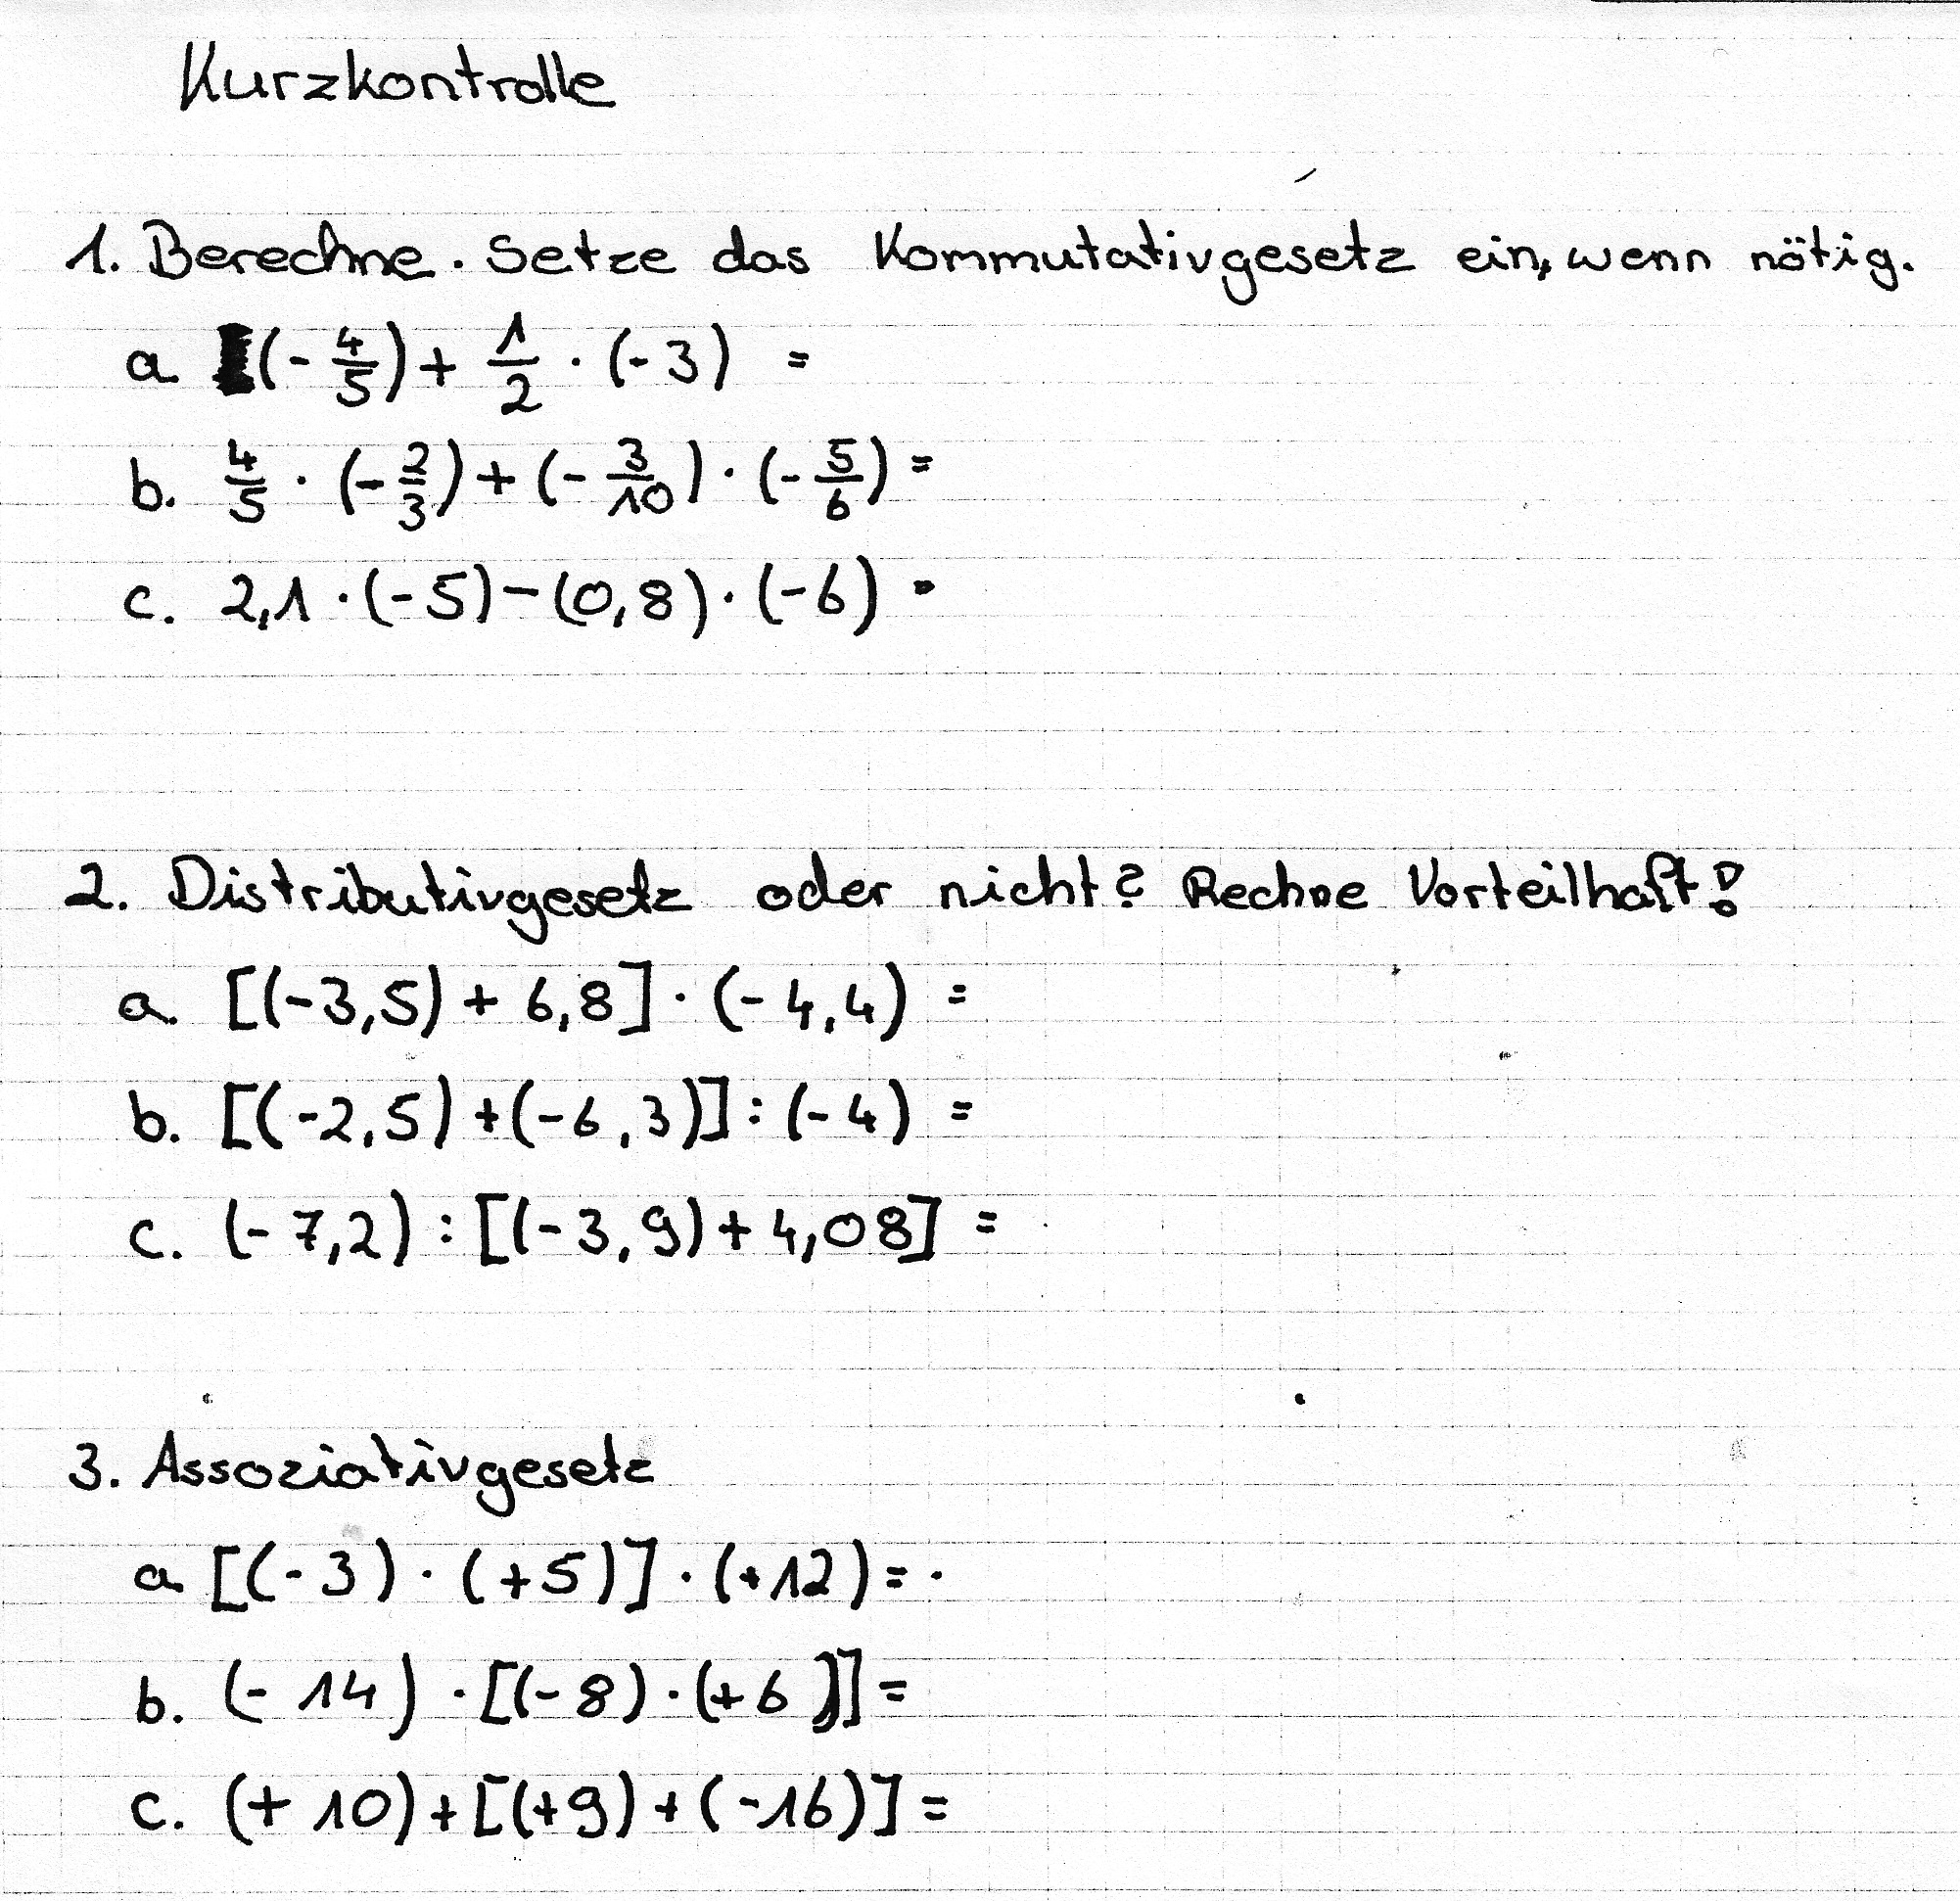 Kurzkontrolle
1. Berechne. Setze das Kommutativgesetz ein, wenn nötig.
a. (-4/5) + 1/2 · (-3) =
b. 4/5 · (-2/3) + (-3/10) · (-5/6) =
c. 2,1 · (-5) - (0,8) · (-6) =
2. Distributivgesetz oder nicht? Rechne Vorteilhaft!
a. [(-3,5) + 6,8] · (-4,4) =
b. [(-2,5) + (-6,3)] : (-4) =
c. (-7,2) : [(-3,9) + 4,08] =
3. Assoziativgesetz
a. [(-3) · (+5)] · (+12) =
b. (-14) · [(-8) · (+6)] =
c. (+10) + [(+9) + (-16)] =